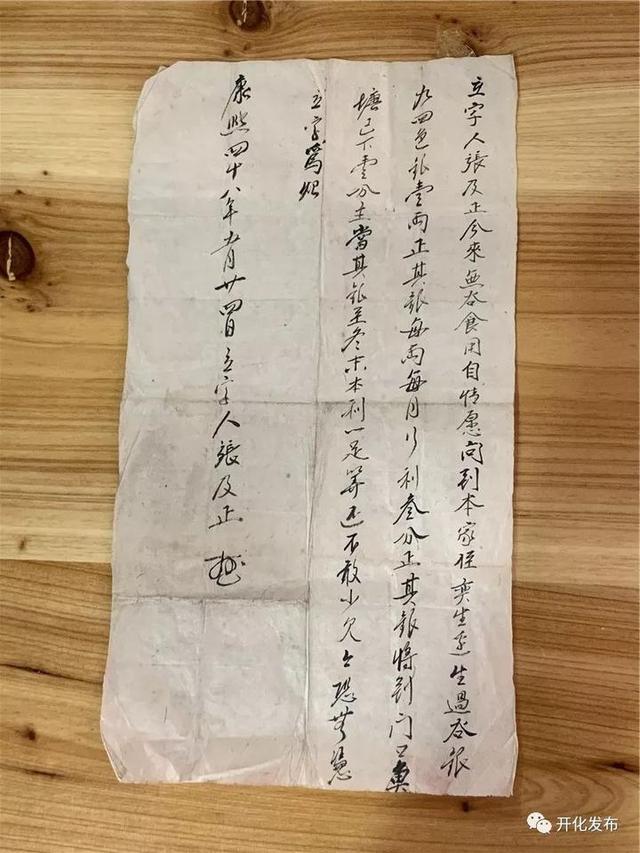 立字人張及正今來無谷食用自情愿向到本家侄奕生進生過谷銀
九四色銀壹兩正其銀每兩每月行利叁分正其銀將到門口
塘己下雲分主當其銀至冬末本利一足筭还不敢少欠今恐無憑
立字為炤
康熙四十八年五月廿四日立字人張及正
开化发布